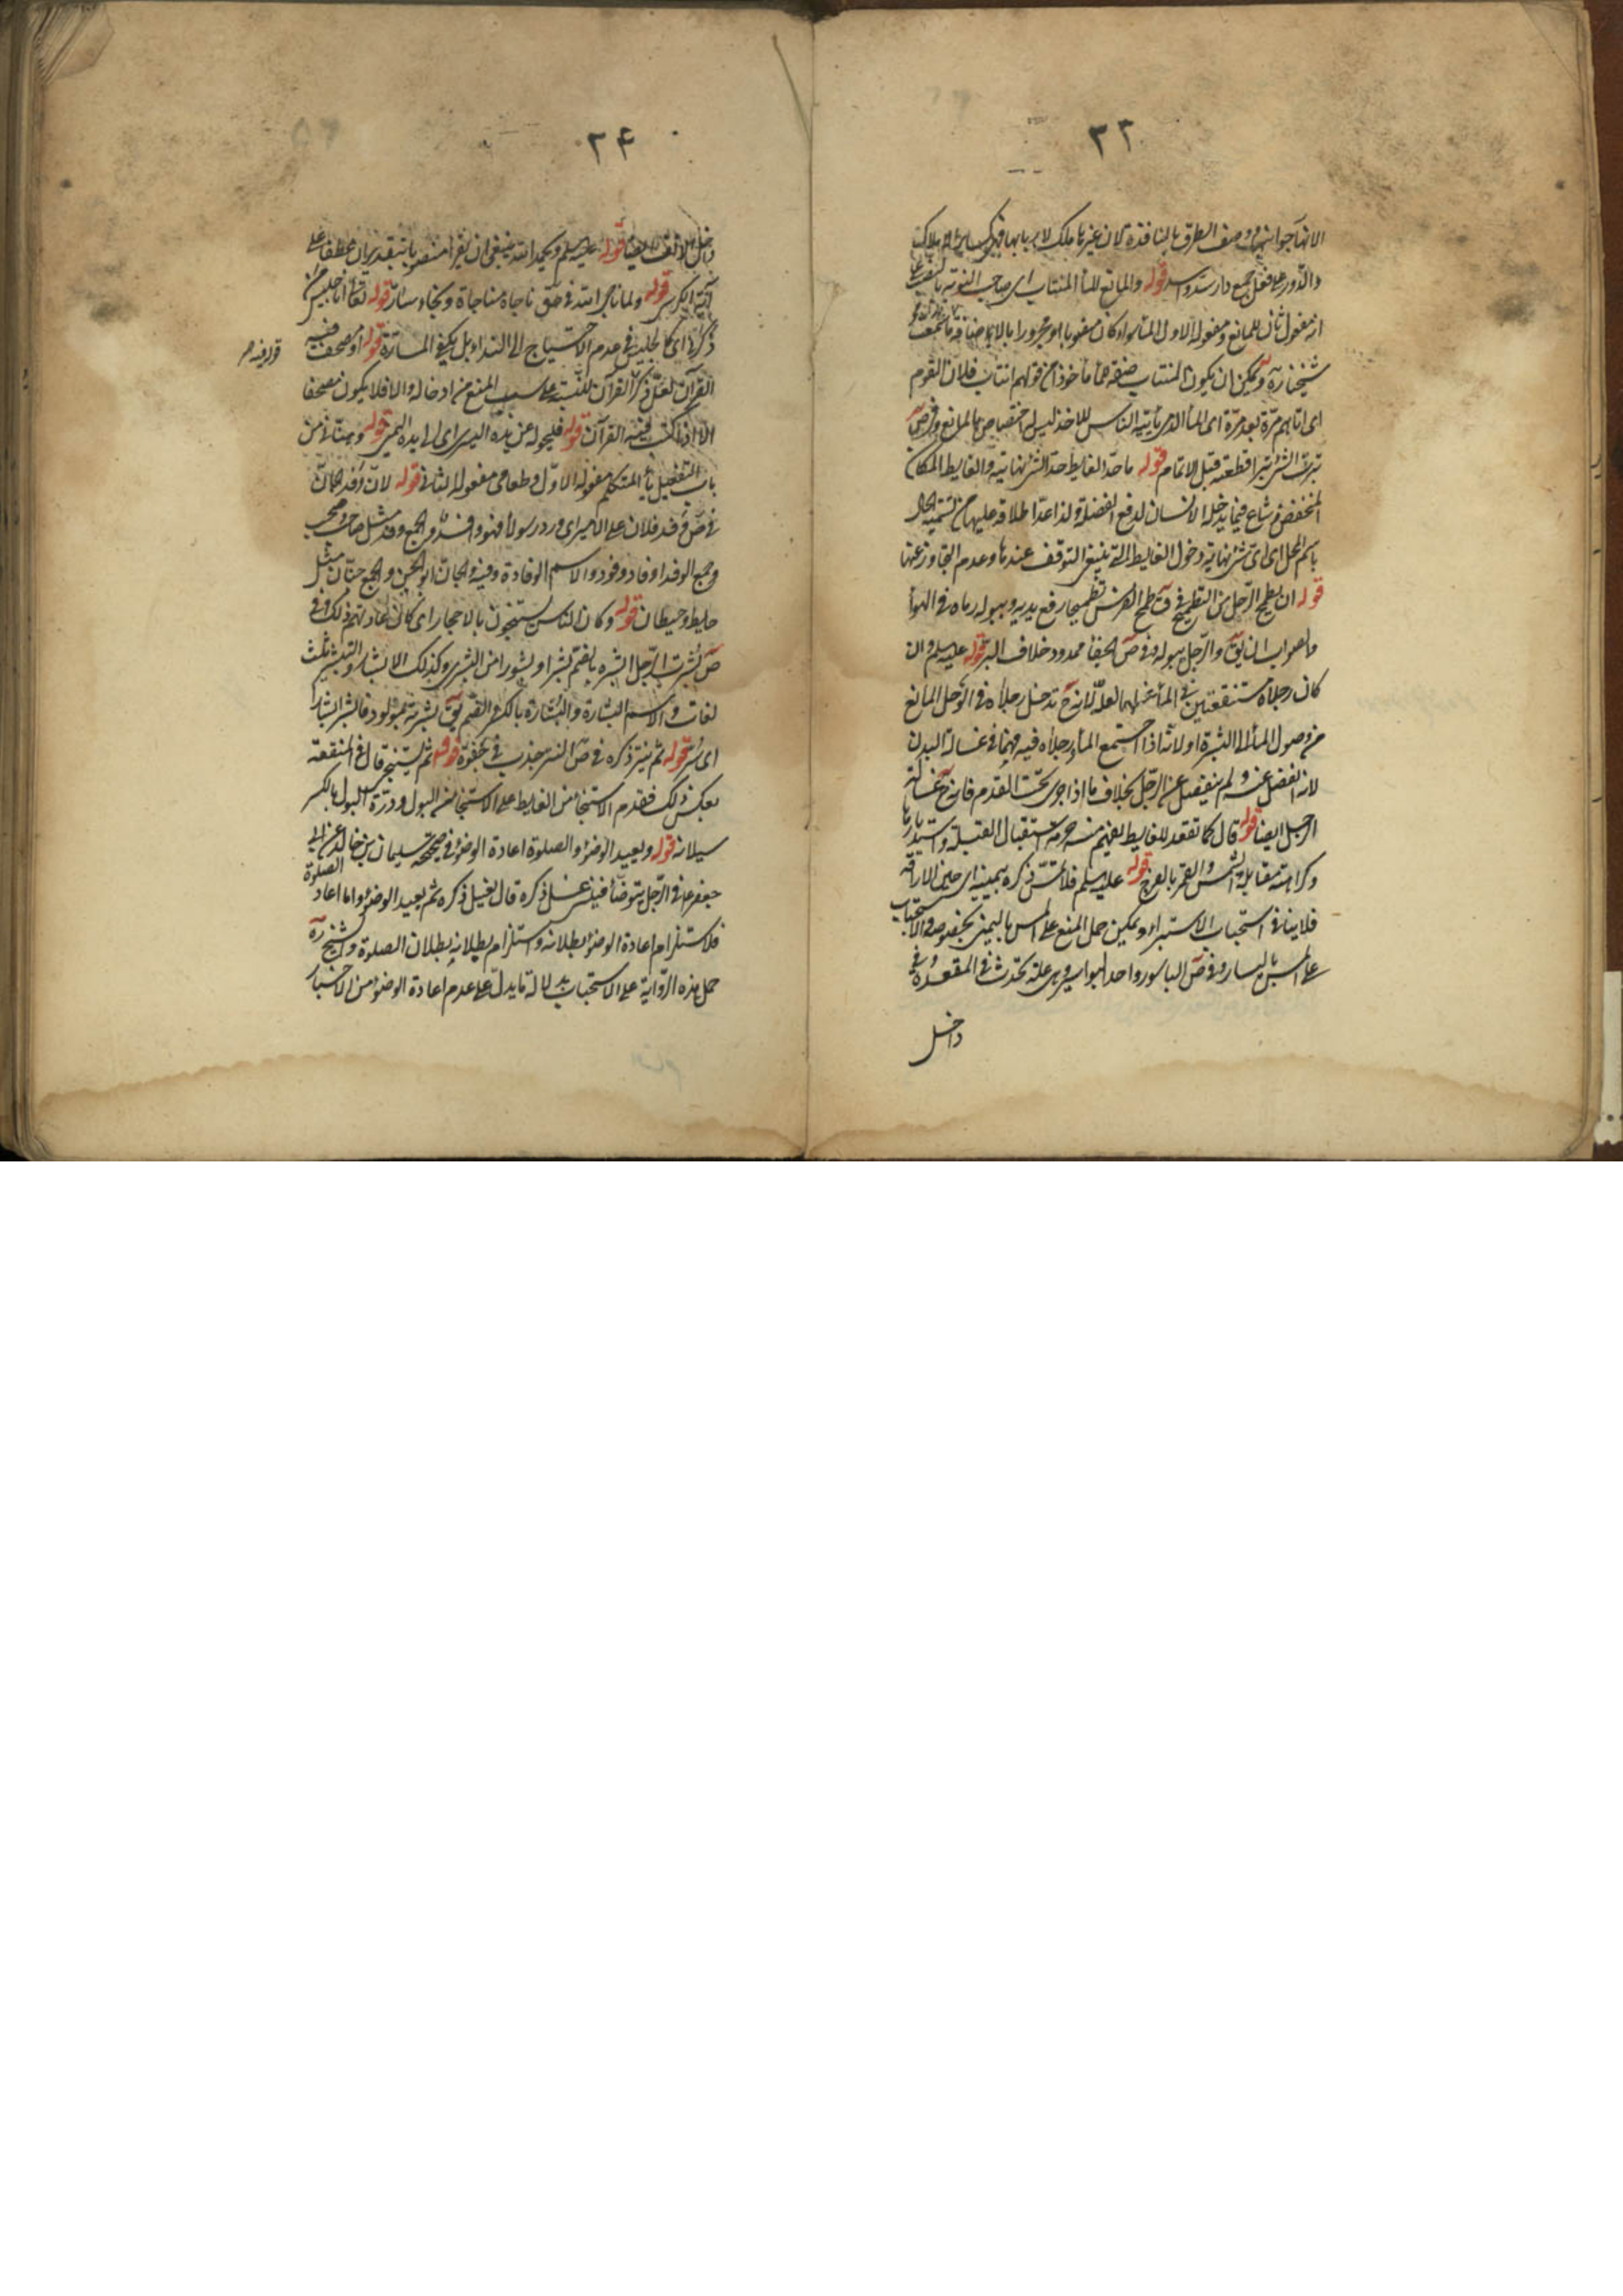 ٢٣
لانها جوانبها ووصف الطرق بالنافذة لان غيرها ملك لاربابها
والدور على فعل جمع دار قوله والمانع للماء المنتاب اى صاحب النوبة
مفعول ثان للمانع ومفعوله الاول الماء سواء كان منصوبا او مجرورا بالاضافة
شيخنا ره ويمكن ان يكون المنتاب صفة للماء مأخوذا من قولهم انتاب فلان القوم
اى اتاهم مرة بعد مرة اى الماء الذى يأتيه الناس للاخذ ليس له اختصاص بالمانع وفى ص
بترت الشئ بترا قطعته قبل الاتمام قوله ما حد الغايط حد الشئ نهايته والغايط المكان
المنخفض وشاع فيما يدخله الانسان لدفع الفضلة ولذا عد اطلاقه عليها من تسمية الحال
باسم المحل اى اى شئ نهاية دخول الغايط التى ينبغى التوقف عندها وعدم التجاوز عنها
قوله ان يطمح الرجل من التطميح فى ق طمح الفرس تطميحا رفع يديه وببوله رماه فى الهواء
والرجل ببوله وفى ص ممدود خلاف البر قوله عليه السلم وان
كان رجلاه مستنقعتين فى الماء لانه ح تدخل رجلاه فى الوحل المانع
من وصول الماء الى البشرة او لانه اذا اجتمع الماء ورجلاه فيه فهما فى غسالة البدن
لانه انفصل عنه ولم ينفصل عن الرجل بخلاف ما اذا جرى تحت القدم فانه ح غسالة
الرجل ايضا قوله قال كما تقعد للغايط يفهم منه حرمة استقبال القبلة واستدبارها
وكراهة مقابلة الشمس والقمر بالفرج قوله عليه السلم فلا يمس ذكره بيمينه اى حين الاراقة
فلا ينافى استحباب الاستبراء ويمكن حمل المنع على المس باليمين بخصوصه والاستحباب
على المس باليسار وفى ص الباسور واحد البواسير وهى علة تحدث فى المقعدة وفى
داخل
٢٤
داخل الانف ايضا قوله عليه السلم ويحمد الله ينبغى ان يقرأ منصوبا بتقدير ان عطفا على
آية الكرسى قوله ولما ناجى الله فى ق ناجاه مناجاة ونجاء ساره قوله تعالى انا جليس من
ذكرنى اى كالجليس فى عدم الاحتياج الى النداء بل يكفى المسارة قوله او مصحف فيه
القرآن لعل ذكر القرآن للتنبيه على سبب المنع من ادخاله والا فلا يكون مصحفا
الا اذا كتب فيه القرآن قوله فليحوله عن يده اليسرى اى الى يده اليمنى قوله وهنأنى من
باب التفعيل ياء المتكلم مفعوله الاول وطعامى مفعوله الثانى قوله لان وفد الجان
فى ص وفد فلان على الامير اى ورد رسولا فهو وافد والجمع وفد مثل صاحب وصحب
وجمع الوفد اوفاد ووفود والاسم الوفادة وفيه والجان ابو الجن والجمع جنان مثل
حايط وحيطان قوله وكان الناس يستنجون بالاحجار اى كان عادتهم ذلك وفى
ص بشرت الرجل ابشره بالضم بشرا وبشورا من البشرى وكذلك الابشار والتبشير ثلث
لغات والاسم البشارة والبشارة بالكسر والضم يق بشرته بمولود فابشر ابشارا
اى سر قوله ثم ينتر ذكره فى ص النتر جذب فى جفوة قوله ثم يستنجى قال فى المقنعة
بعكس ذلك فقدم الاستنجاء من الغايط على الاستنجاء من البول ودرة البول بالكسر
سيلانه قوله ويعيد الوضوء والصلوة اعادة الوضوء فى صحيحة سليمان بن خالد عن ابى
جعفر ع فى الرجل يتوضأ فينسى غسل ذكره قال يغسل ذكره ثم يعيد الوضوء واما اعادة الصلوة
فلاستلزام اعادة الوضوء بطلانه واستلزام بطلانه بطلان الصلوة والشيخ ره
حمل هذه الرواية على الاستحباب بدلالة ما يدل على عدم اعادة الوضوء من الاخبار